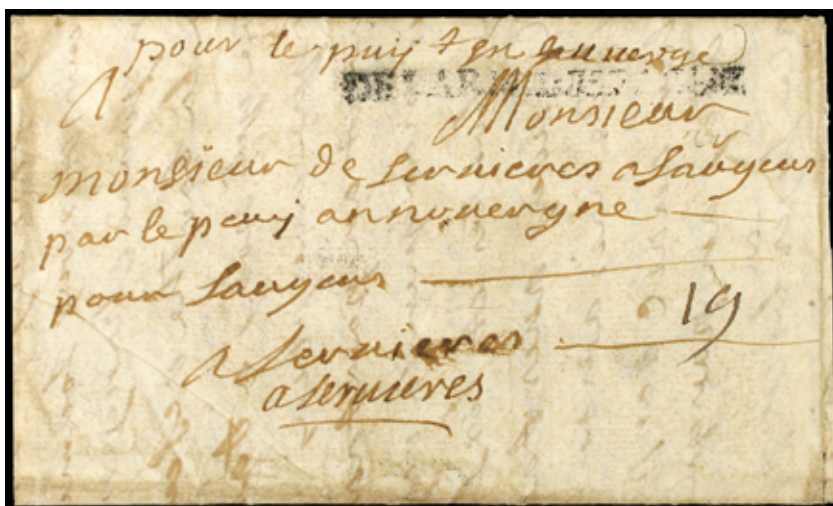 pour le puij + en auvergne
DE L'ARM
A Monsieur
monsieur de Servieres a Saugeus
par le puij annovergne
pour Saugeus
19
a Servieres
a servieres